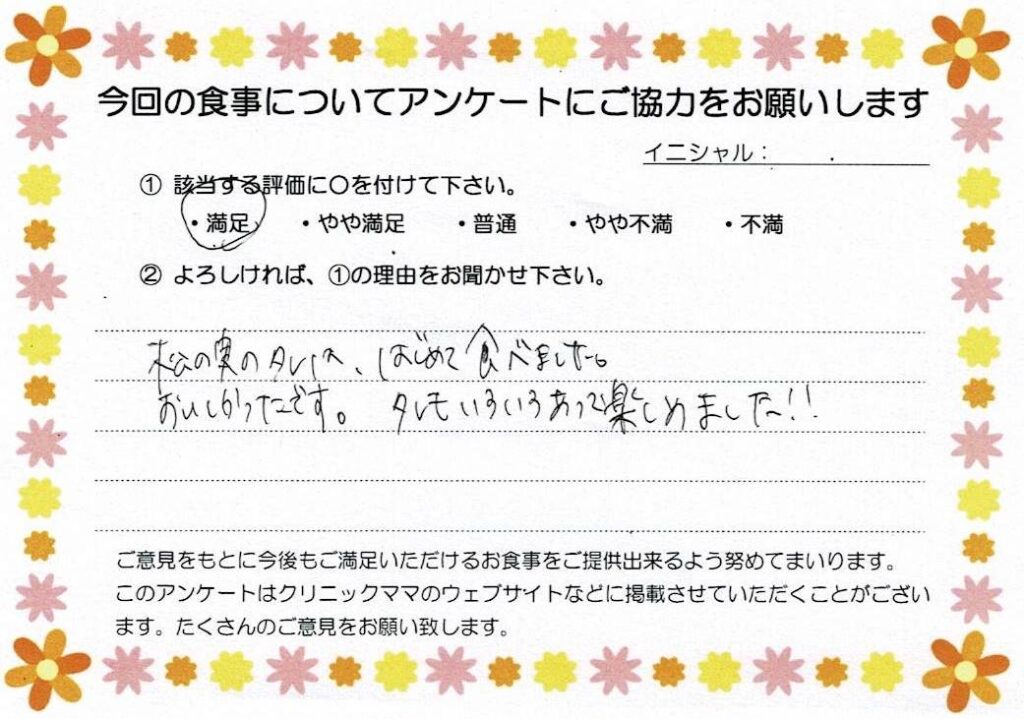 今回の食事についてアンケートにご協力をお願いします
イニシャル： .
① 該当する評価に〇を付けて下さい。
・満足 ・やや満足 ・普通 ・やや不満 ・不満
② よろしければ、①の理由をお聞かせ下さい。
松の実のタレは、はじめて食べました。
おいしかったです。 タレもいろいろあって楽しめました!!
ご意見をもとに今後もご満足いただけるお食事をご提供出来るよう努めてまいります。
このアンケートはクリニックママのウェブサイトなどに掲載させていただくことがござい
ます。たくさんのご意見をお願い致します。